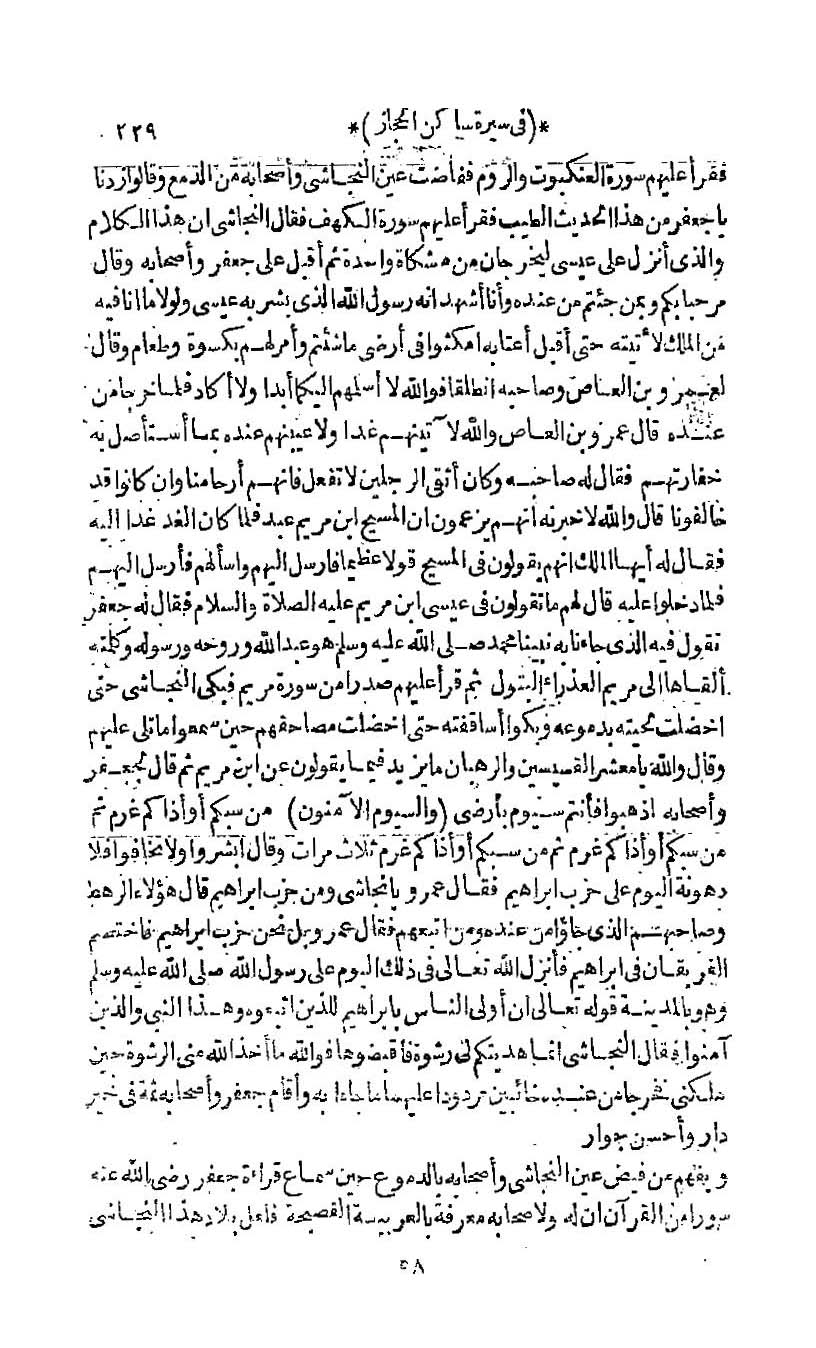 *(فى سيرة ساكن الحجاز)* ٢٢٩
فقرأ عليهم سورة العنكبوت والروم ففاضت عين النجاشى وأصحابه من الدمع وقالوا زدنا
ياجعفر من هذا الحديث الطيب فقرأ عليهم سورة الكهف فقال النجاشى ان هذا الكلام
والذى أنزل على عيسى ليخرجان من مشكاة واحدة ثم أقبل على جعفر وأصحابه وقال
مرحبا بكم وبمن جئتم من عنده وأنا أشهد انه رسول الله الذى بشر به عيسى ولولا ما انا فيه
من الملك لا تيته حتى أقبل أعتابه امكثوا فى أرضى ما شئتم وأمر لهم بكسوة وطعام وقال
لعمرو بن العاص وصاحبه انطلقا فوالله لا أسلمهم اليكما أبدا ولا أكاد فلما خرجا من
عنده قال عمرو بن العاص والله لا تينهم غدا ولا عيبنهم عنده بما أستأصل به
خفارتهم فقال له صاحبه وكان أتقى الرجلين لا تفعل فانهم أرحامنا وان كانوا قد
خالفونا قال والله لا خبرنه أنهم يزعمون ان المسيح ابن مريم عبد فلما كان الغد غدا اليه
فقال له أيها الملك انهم يقولون فى المسيح قولا عظيما فارسل اليهم واسألهم فأرسل اليهم
فلما دخلوا عليه قال لهم ما تقولون فى عيسى ابن مريم عليه الصلاة والسلام فقال له جعفر
نقول فيه الذى جاءنا به نبينا محمد صلى الله عليه وسلم هو عبد الله وروحه ورسوله وكلمته
ألقاها الى مريم العذراء البتول ثم قرأ عليهم صدرا من سورة مريم فبكى النجاشى حتى
اخضلت لحيته بدموعه وبكوا أساقفته حتى اخضلت مصاحفهم حين سمعوا ما تلى عليهم
وقال والله يا معشر القسيسين والرهبان ما يزيد فيما يقولون عن ابن مريم ثم قال لجعفر
وأصحابه اذهبوا فأنتم سيوم بأرضى (والسيوم الا منون) من سبكم أو أذاكم غرم ثم
من سبكم أو أذاكم غرم ثم من سبكم أو أذاكم غرم ثلاث مرات وقال أبشروا ولا تخافوا فلا
دهونة اليوم على حزب ابراهيم فقال عمرو يا نجاشى ومن حزب ابراهيم قال هؤلاء الرهط
وصاحبهم الذى جاؤا من عنده ومن اتبعهم فقال عمرو بل نحن حزب ابراهيم فاختصم
الفريقان فى ابراهيم فأنزل الله تعالى فى ذلك اليوم على رسول الله صلى الله عليه وسلم
وهو بالمدينة قوله تعالى ان أولى الناس بابراهيم للذين اتبعوه وهذا النبى والذين
آمنوا فقال النجاشى انما هديتكم لى رشوة فاقبضوها فوالله ما أخذ الله منى الرشوة حين
ملكنى فخرجا من عنده خائبين مردودا عليهما ما جاءا به وأقام جعفر وأصحابه ثمة فى خير
دار وأحسن جوار
ويفهم من فيض عين النجاشى وأصحابه بالدموع حين سماع قراءة جعفر رضى الله عنه
سورا من القرآن ان له ولاصحابه معرفة بالعربية الفصيحة فاعل بلاد هذا النجاشى